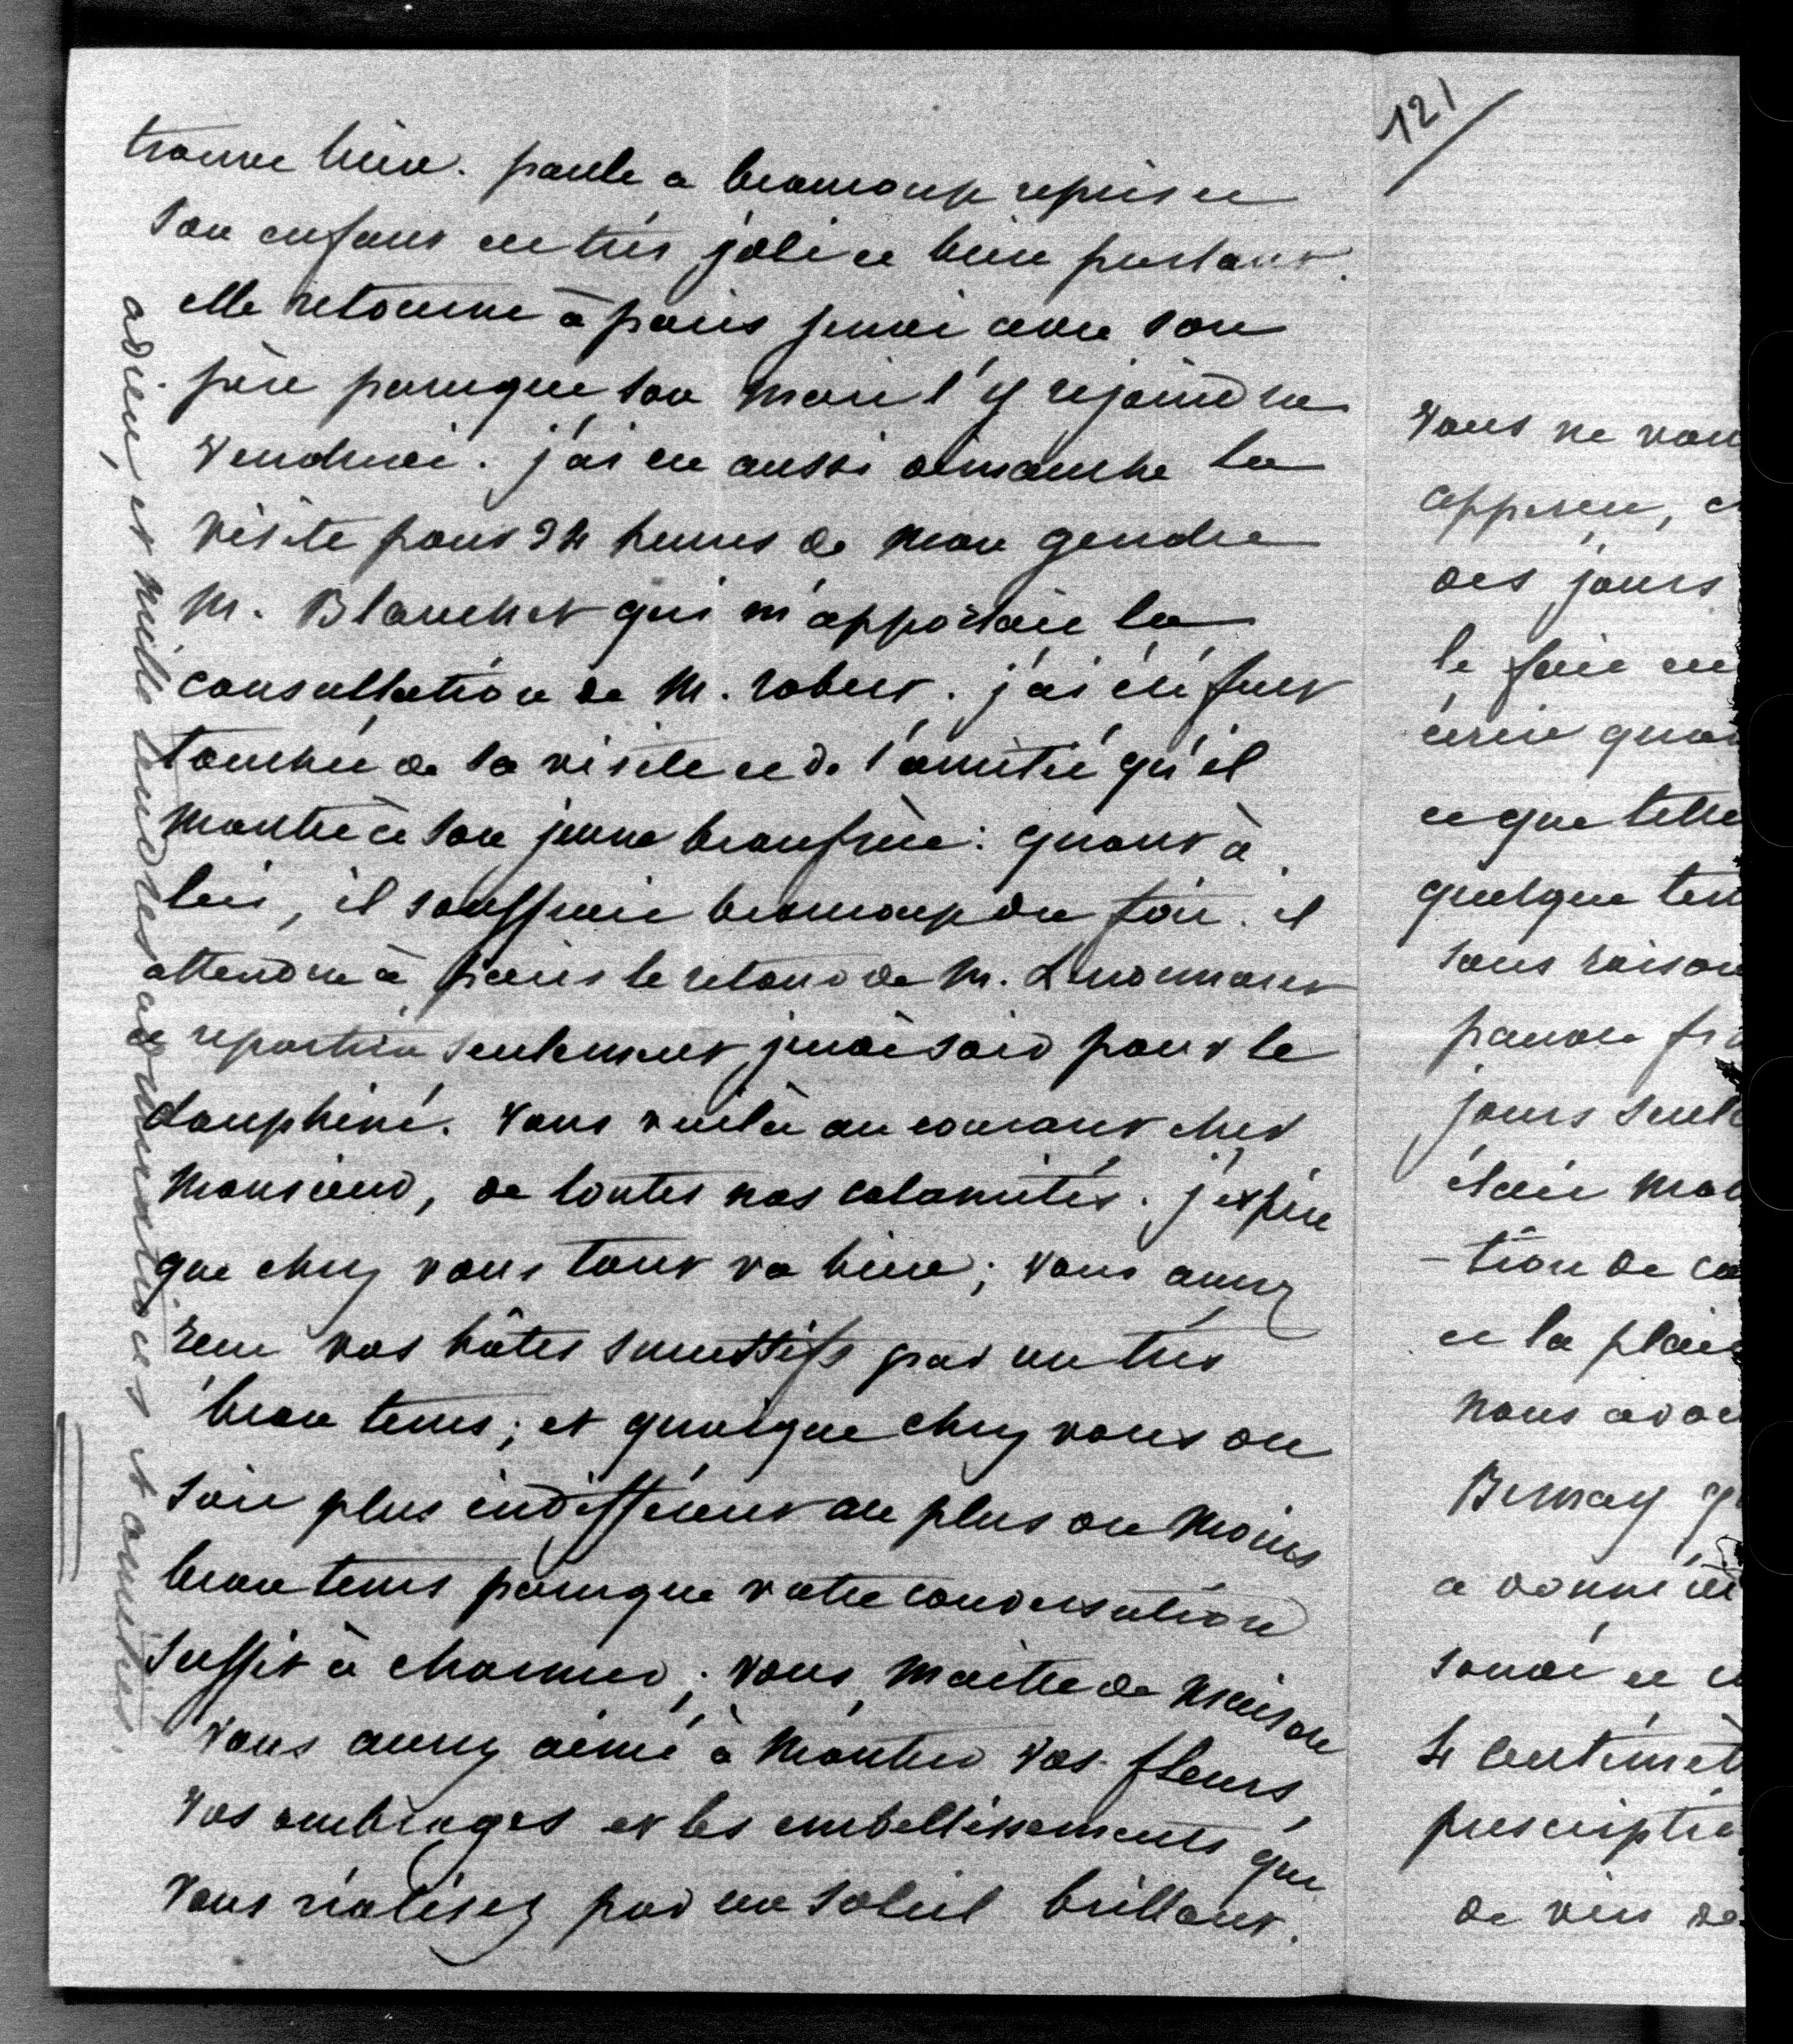 trouve bien. paule a beaucoup repris et
son enfant est très joli et bien portant.
elle retourne à paris jeudi avec son
père parceque son mari l'y rejoindra
vendredi. j'ai eu aussi dimanche la
visite pour 24 heures de mon gendre
M. Blanchet qui m'apportait la
consultation de M. robert. j'ai été fort
touchée de sa visite et de l'amitié qu'il
montre à son jeune beaufrère: quant à
lui, il souffrait beaucoup du foie. il
attendra à paris le retour de M.
et repartira seulement jeudi soir pour le
dauphiné. vous voilà au courant cher
monsieur, de toutes nos calamités. j'espère
que chez vous tout va bien; vous aurez
reçu vos hôtes successifs par un très
beau tems; et quoique chez vous on
soit plus indifférent au plus ou moins
beau tems parceque votre conversation
suffit à charmer; vous, maitre de maison
vous aurez aimé à montrer vos fleurs,
vos ombrages et les embellissements que
vous réalisez par un soleil brillant.
adieu, et mille tendresses admiratives et amitiés.
121
vous ne vou
apperçu, e
des jours
le faire en
écrire quan
et que telle
quelque ten
sans raison
pauvre fr
jours seul
était mal
-tion de ca
et la plai
nous avon
Bernay q
a donné
sonde et
4 centimèt
prescriptio
de vin de